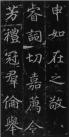 申如在之敬
睿詞切嘉薦令
芳禮冠君倫舉